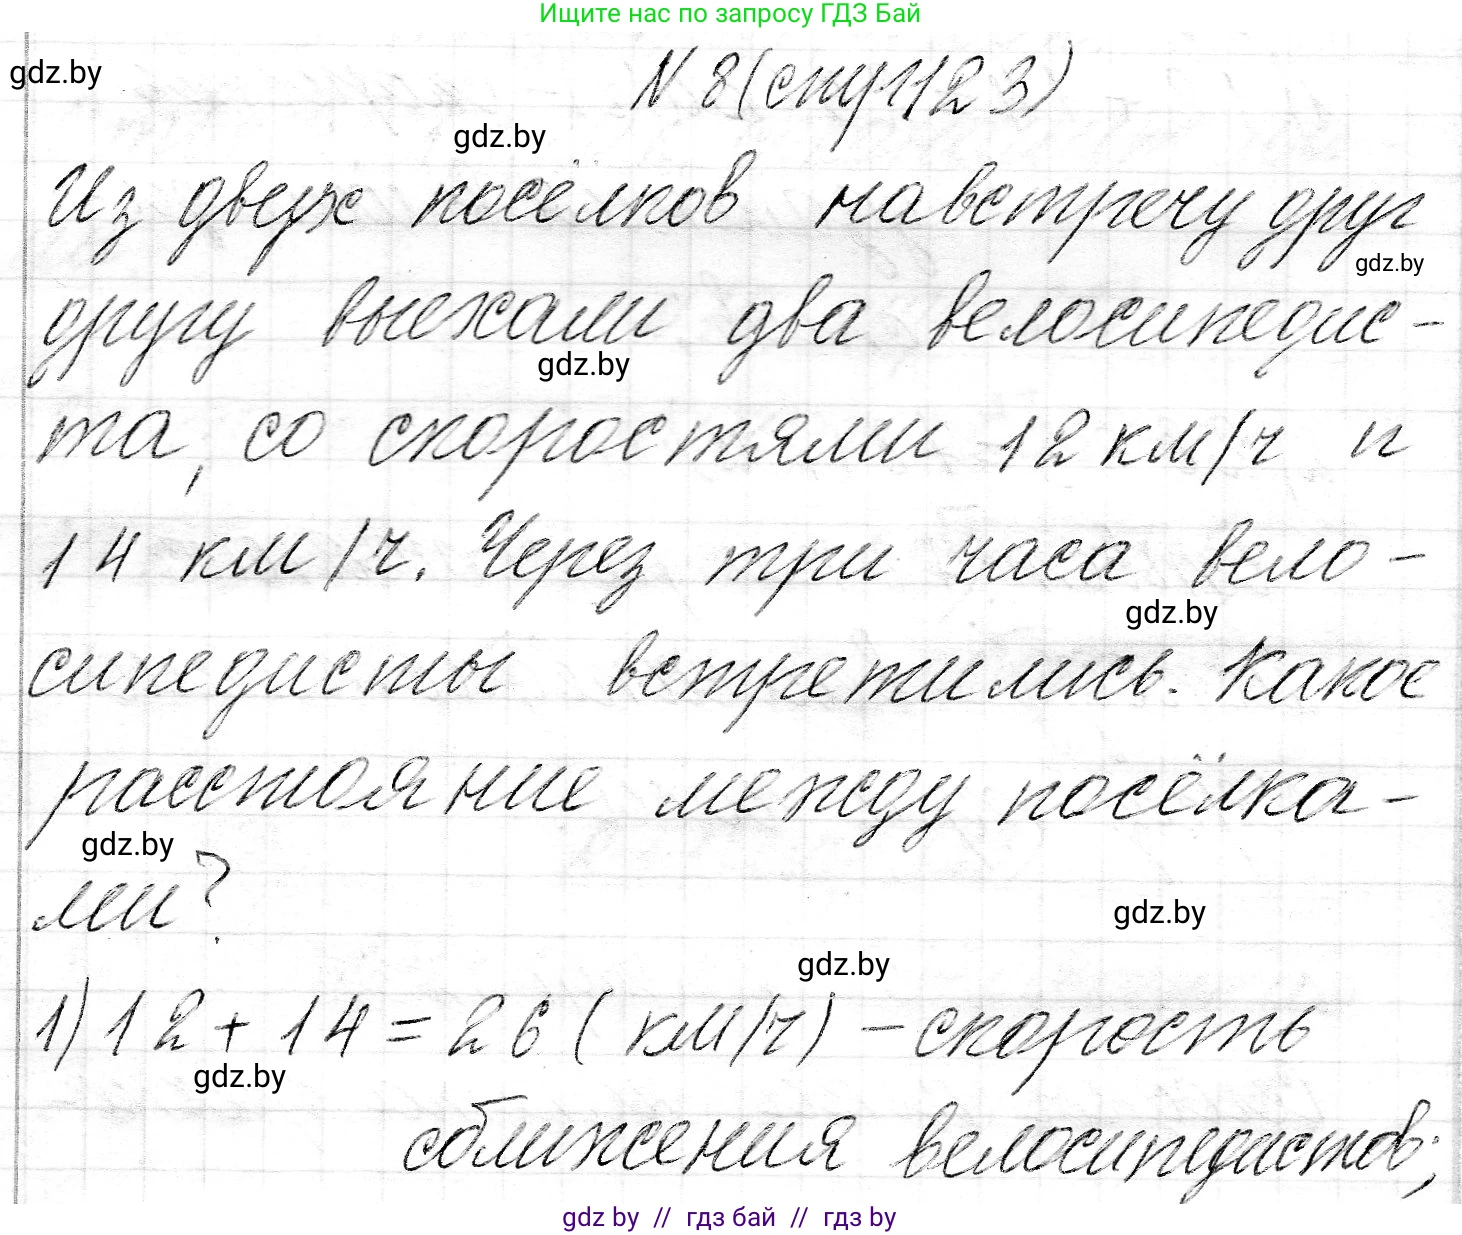 Ищите нас по запросу ГДЗ Бай
gdz.by
N 8 (стр 123)
gdz.by
Из двух посёлков навстречу друг
gdz.by
другу выехали два велосипедис-
gdz.by
та, со скоростями 12 км/ч и
14 км/ч. Через три часа вело-
gdz.by
сипедисты встретились. Какое
расстояние между посёлка-
gdz.by
ми?
gdz.by
gdz.by
1) 12 + 14 = 26 ( км/ч) - скорость
gdz.by
сближения велосипедистов;
gdz by // гдз бай // гдз by